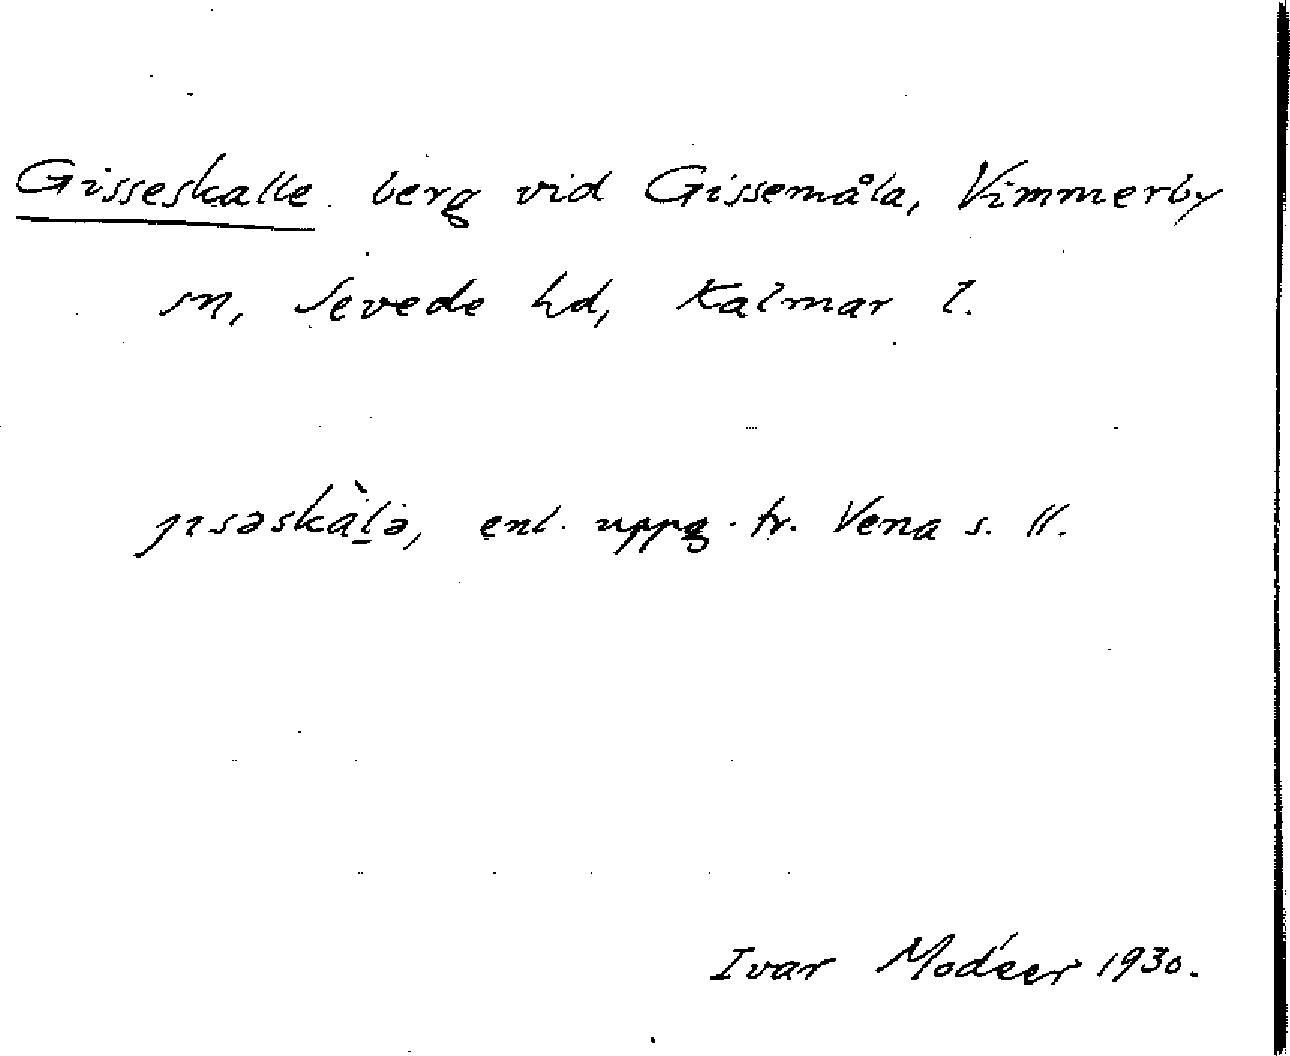 Gisseskalle. berg vid Gissemåla, Vimmerby
sn, Sevede hd, Kalmar l.
jɪsəskàl̠ə, enl. uppg. fr. Vena s. ll.
Ivar Modéer 1930.